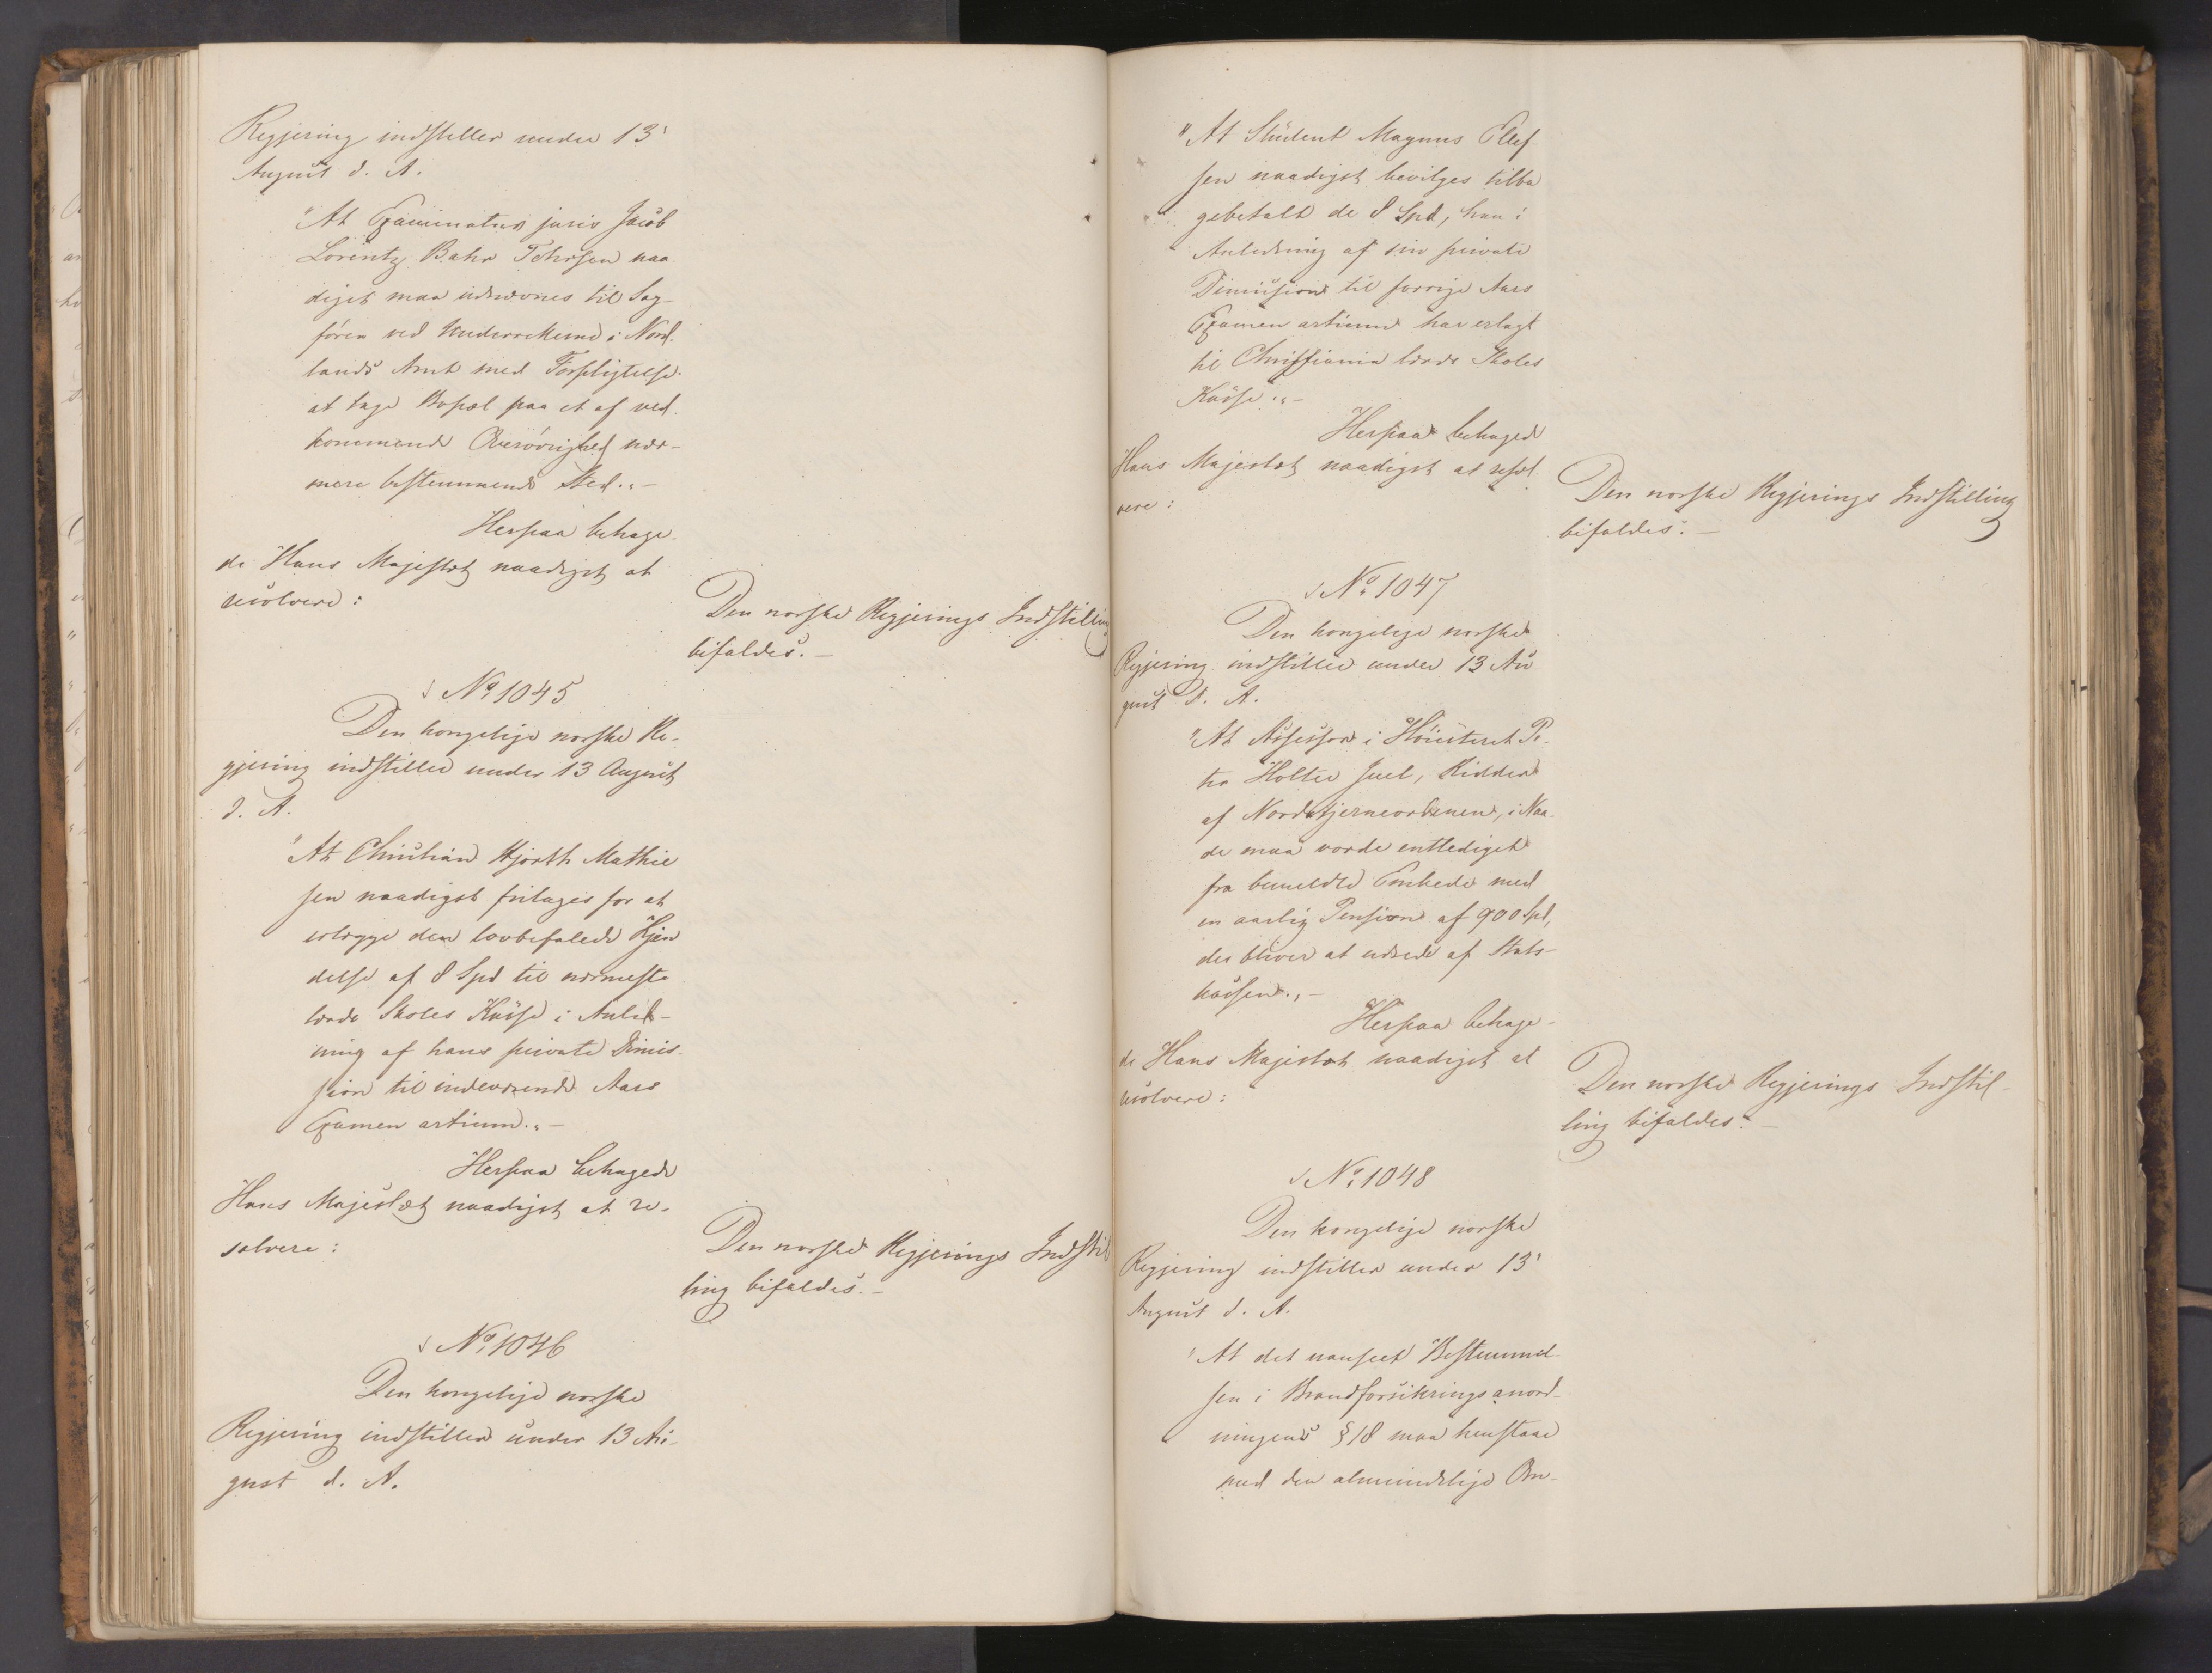 Regjering indstiller under 13'
August d. A.
"At Examinatus juris Jacob
Lorentz Bahr Tehrsen naa
digst maa udnævnes til Sag-
fører ved Underretterne i Nord-
lands Amt med Forpligtelse
at tage Bopæl paa et af ved-
kommende Overøvrighed nær-
mere bestemmende Sted."-
Herpaa behage-
de Hans Majestæt naadigst at
resolvere:
Den norske Regjerings Indstilling
bifaldes.-
No 1045
Den kongelige norske Re-
gjering indstiller under 13 August
d. A.
"At Christian Hjorth Mathie
sen naadigst fritages for at
erlægge den lovbefalede Kjen
delse af 8 Spd til nærmeste
lærde Skoles Kasse i Anled-
ning af hans private Dimis-
sion til indeværende Aars
Examen artium."-
Herpaa behagede
Hans Majestæt naadigst at re-
solvere:
Den norske Regjerings Indstil
ling bifaldes.-
No 1046
Den kongelige norske
Regjering indstiller under 13 Au-
gust d. A.
"At Student Magnus Ellef-
sen naadigst bevilges tilba
gebetalt de 8 Spd, han i
Anledning af sin private
Dimission til forrige Aars
Examen artium har erlagt
til Christiania lærde Skoles
Kasse."-
Herpaa behagede
Hans Majestæt naadigst at resol-
vere:
Den norske Regjerings Indstilling
bifaldes.-
No 1047
Den kongelige norske
Regjering indstiller under 13 Au
gust d. A.
"At Assessor i Höiesteret Pe-
ter Holter Juel, Ridder
af Nordstjerneordenen, i Naa-
de maa vorde entlediget
fra bemeldte Embede med
en aarlig Pension af 900 Spd,
der bliver at udrede af Stats-
kassen."-
Herpaa behage-
de Hans Majestæt naadigst at
resolvere:
Den norske Regjerings Indstil-
ling bifaldes.-
No 1048
Den kongelige norske
Regjering indstiller under 13'
August d. A.
"At det uanseet Bestemmel-
sen i Brandforsikringsanord-
ningens § 18 maa henstaae
med den almindelige Om-